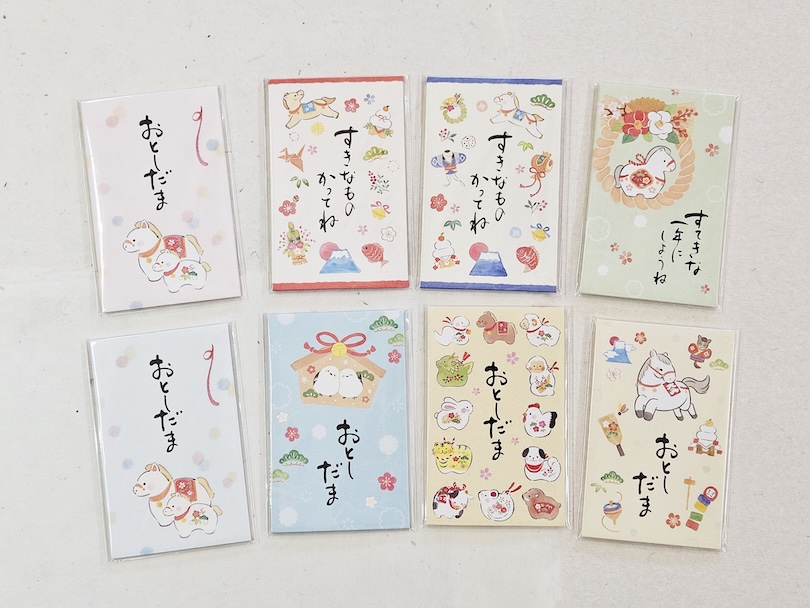 おとしだま
すきなもの
かってね
すきなもの
かってね
すてきな
一年に
しようね
おとしだま
おとし
だま
おとしだま
おとし
だま